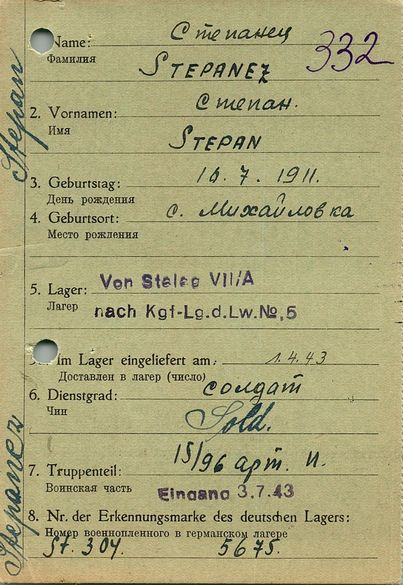 Name: Степанец
332
Фамилия
STEPANEZ
2. Vornamen: Степан.
Имя
STEPAN
3. Geburtstag: 16.7.1911.
День рождения
4. Geburtsort: с. Михайловка
Место рождения
5. Lager: Von Stalag VII/A
Лагер nach Kgf-Lg.d.Lw.No,5
im Lager eingeliefert am: 1.4.43
Доставлен в лагер (число)
6. Dienstgrad: солдат
Чин Sold.
7. Truppenteil: 15/96 арт. п.
Воинская часть Eingang 3.7.43
8. Nr. der Erkennungsmarke des deutschen Lagers:
Номер военнопленного в германском лагере
St. 304. 5675.
Stepan
Stepanez